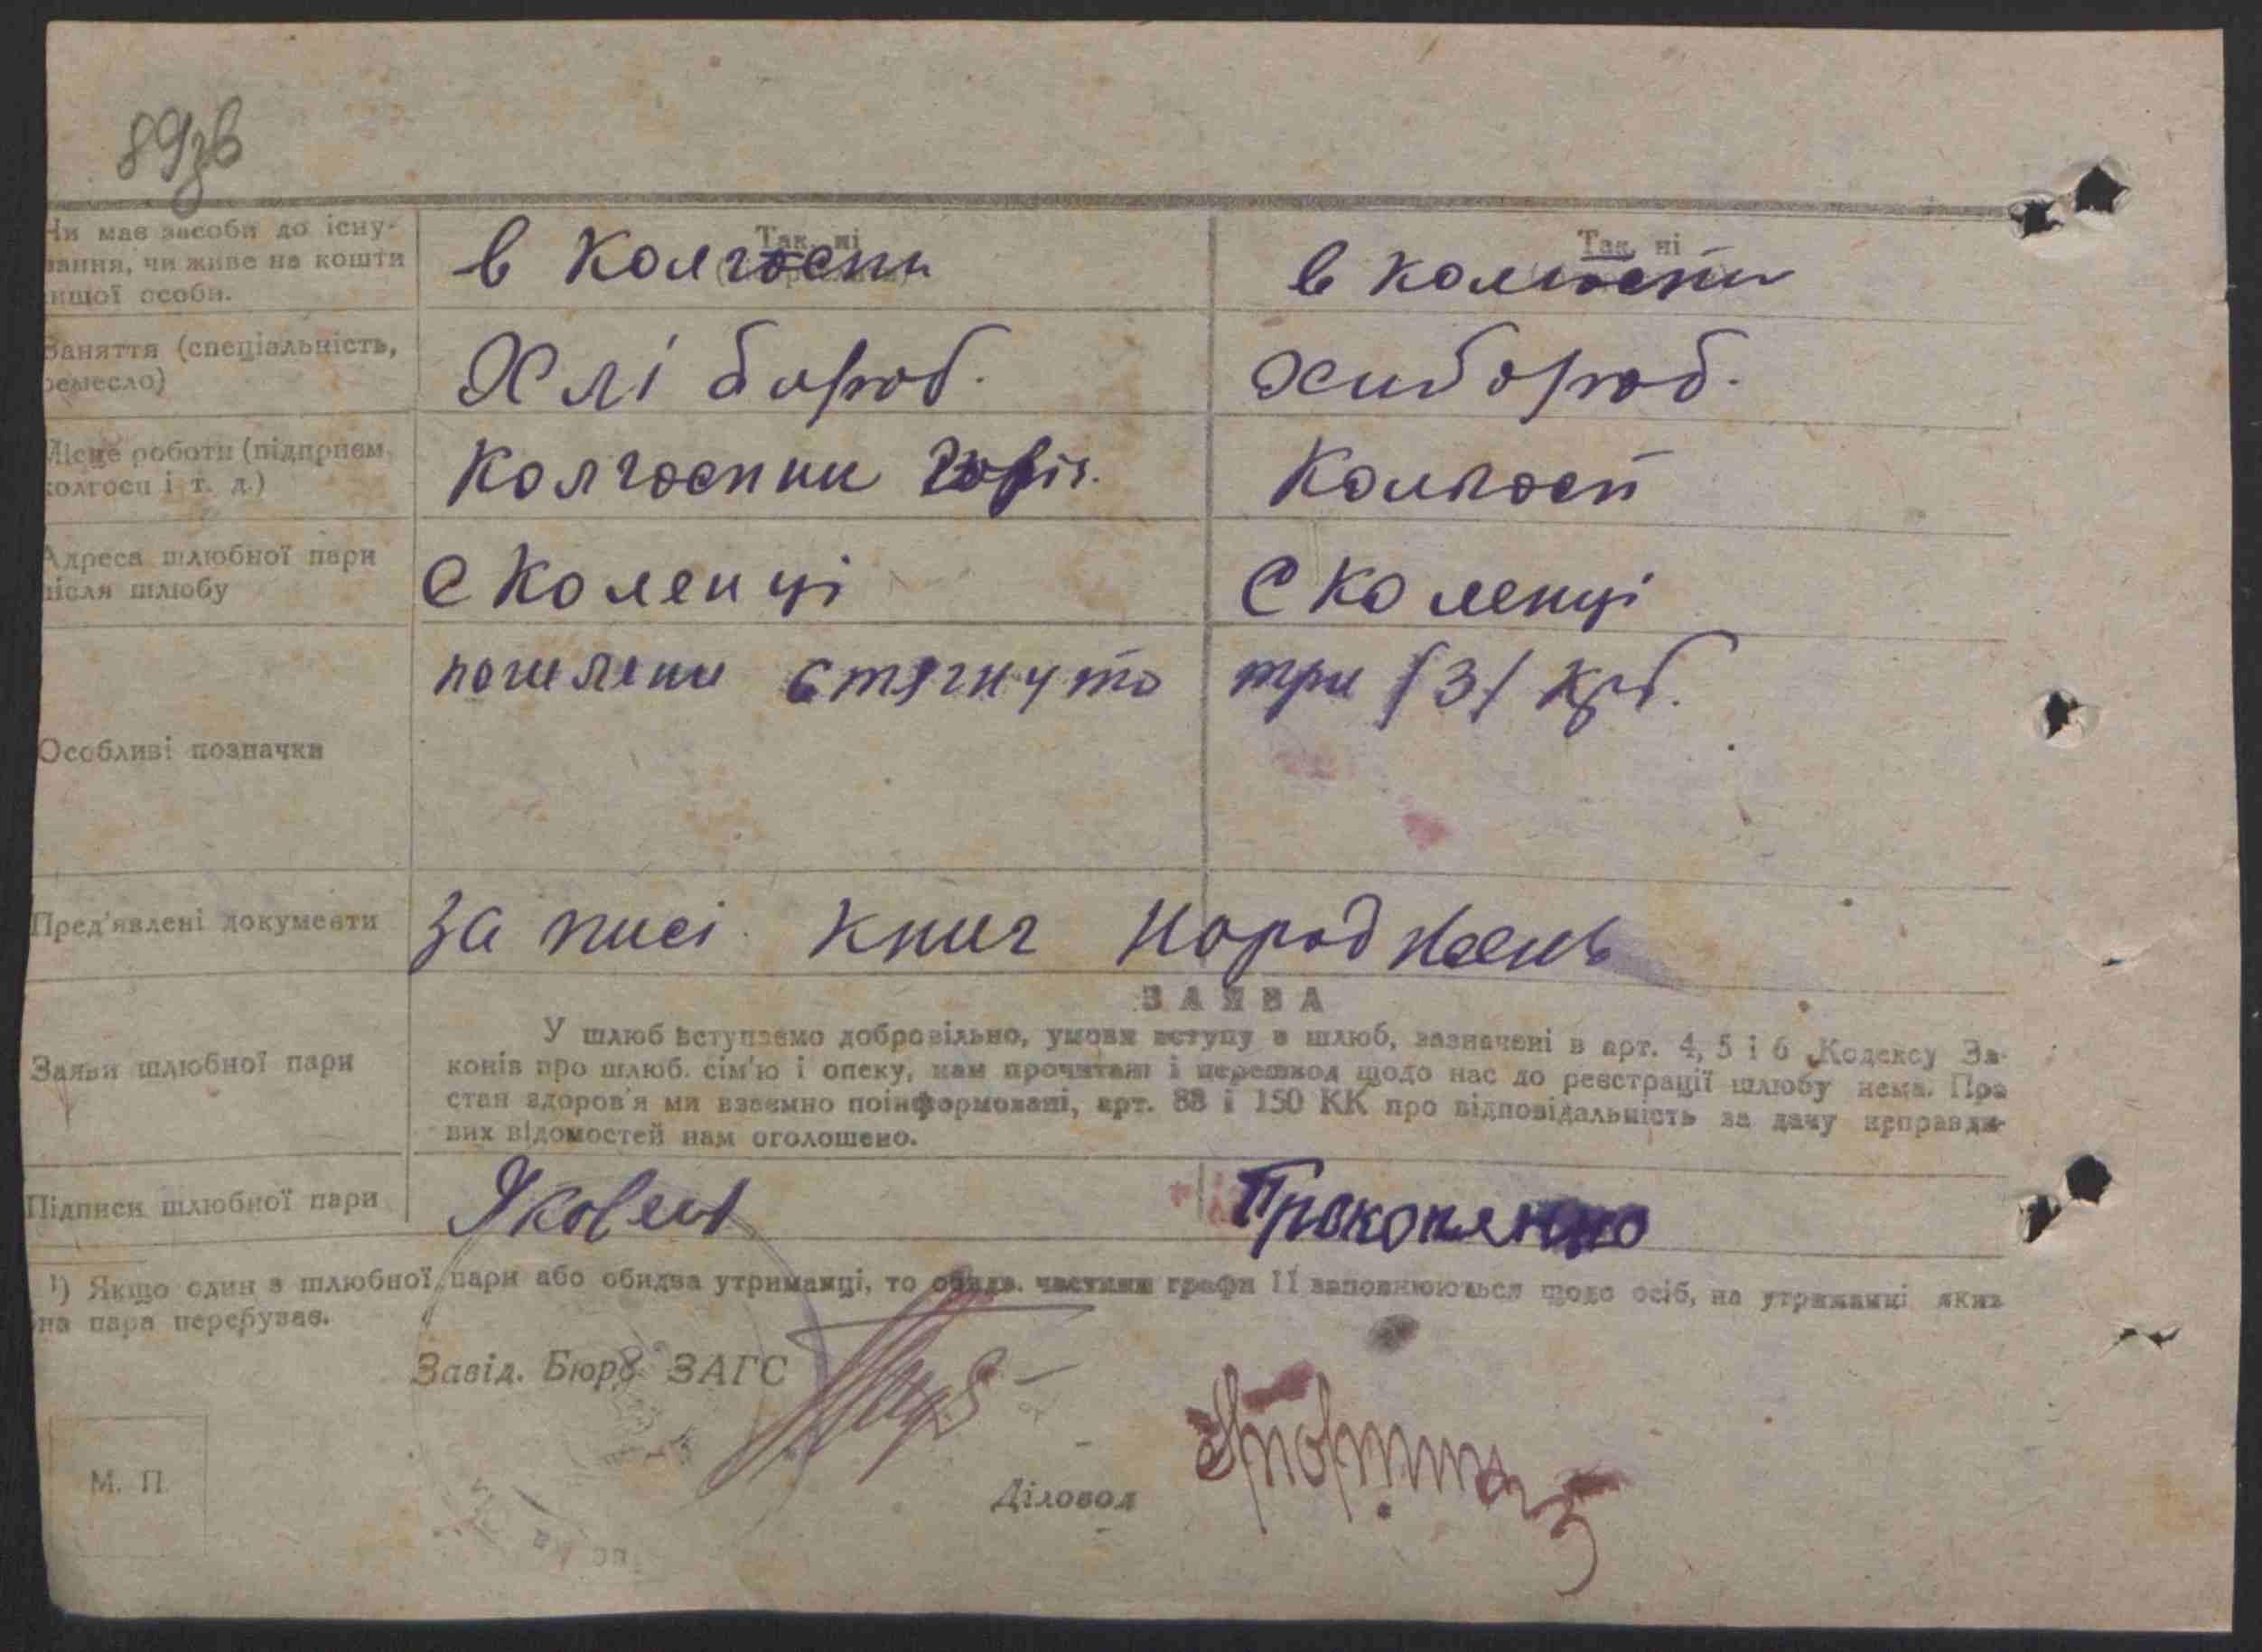 89зв
Чи має засоби до існу-
вання, чи живе на кошти
іншої особи.
Так, ні
в колгоспи
Так, ні
в колгоспи
Заняття (спеціальність,
ремесло)
Хлібороб.
хлібороб.
Місце роботи (підприєм
колгосп і т. д.)
Колгоспи
Колгосп
Адреса шлюбної пари
після шлюбу
С Коленці
С Коленці
Особливі позначки
стягнуто три (3) крб.
Пред'явлені документи
Записі книг народжень
ЗАЯВА
Заяви шлюбної пари
У шлюб вступаємо добровільно, умови вступу в шлюб, зазначені в арт. 4, 5 і 6 „Кодексу За-
конів про шлюб, сім'ю і опеку, нам прочитані і перешкод щодо нас до реєстрації шлюбу нема. Про
стан здоров'я ми взаємно поінформовані, арт. 88 і 150 КК про відповідальність за дачу неправди-
вих відомостей нам оголошено.
Підписи шлюбної пари
Яковен
Прокопенко
¹) Якщо один з шлюбної пари або обидва утриманці, то обидв. частини графи 11 заповнюються щодо осіб, на утриманні яких
на пара перебуває.
Завід. Бюро ЗАГС
Діловод
М. П.